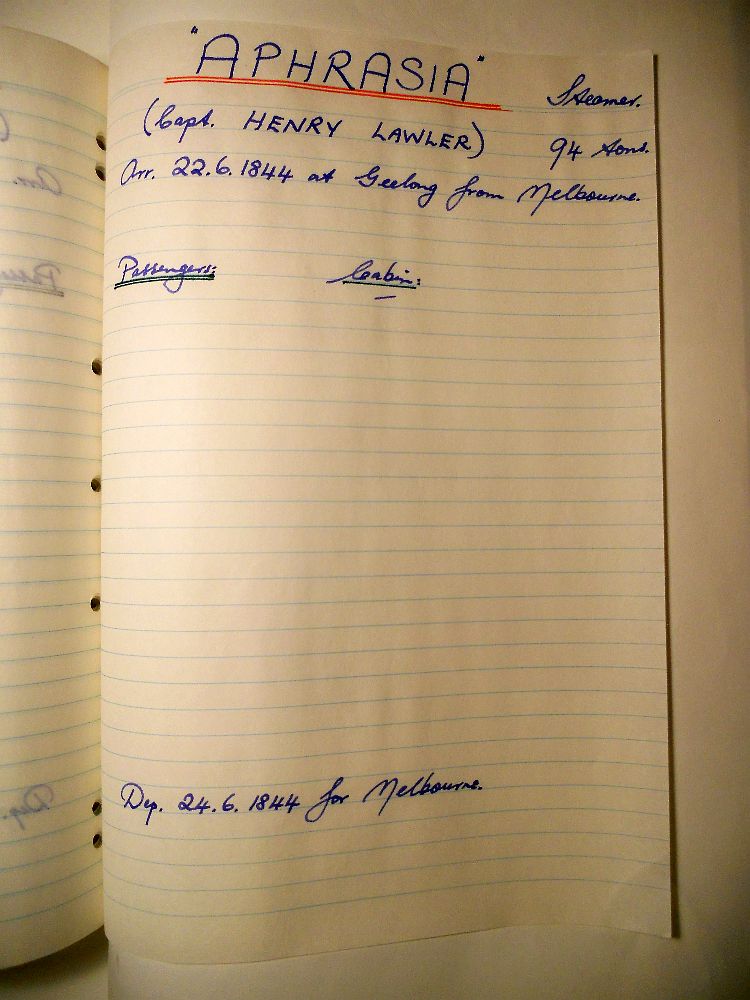 "APHRASIA"
Steamer.
(Capt. HENRY LAWLER)
94 tons.
Arr. 22.6.1844 at Geelong from Melbourne.
Passengers:
Cabin:
—
Dep. 24.6.1844 for Melbourne.